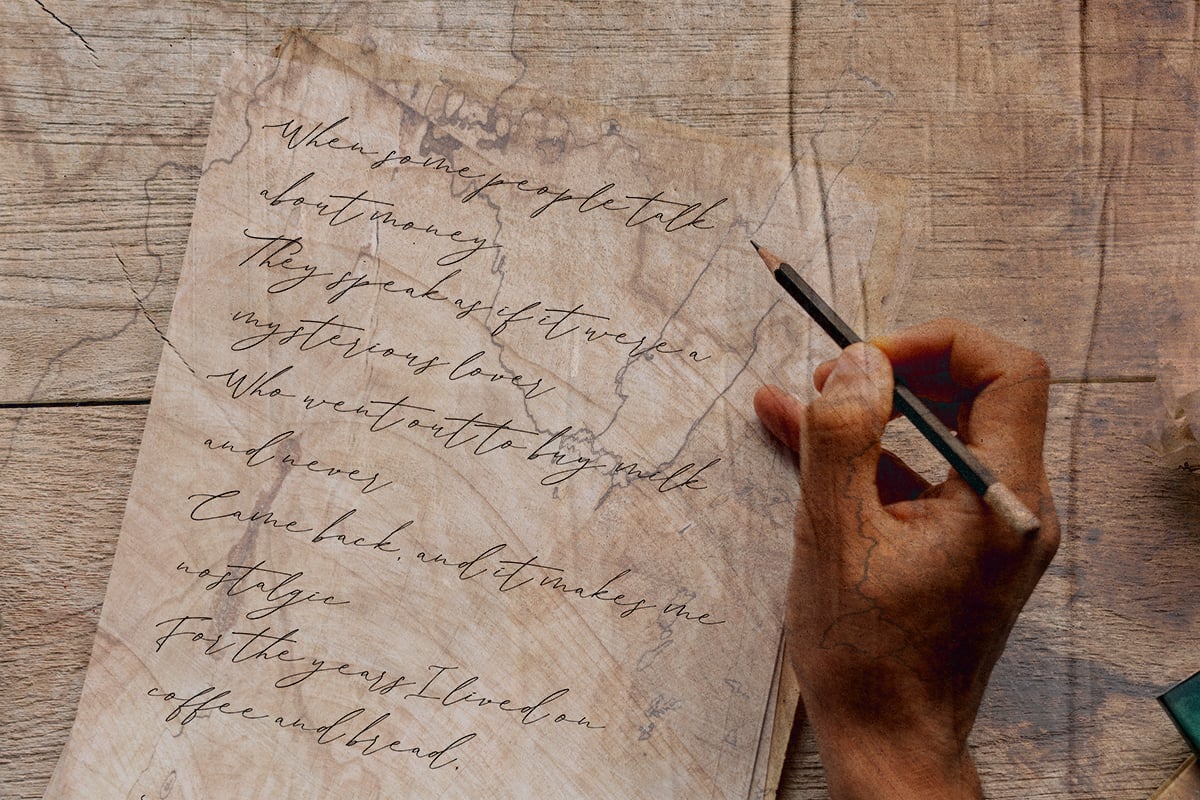 When some people talk
about money
They speak as if it were a
mysterious lover
Who went out to buy milk
and never
Came back, and it makes me
nostalgic
For the years I lived on
coffee and bread.